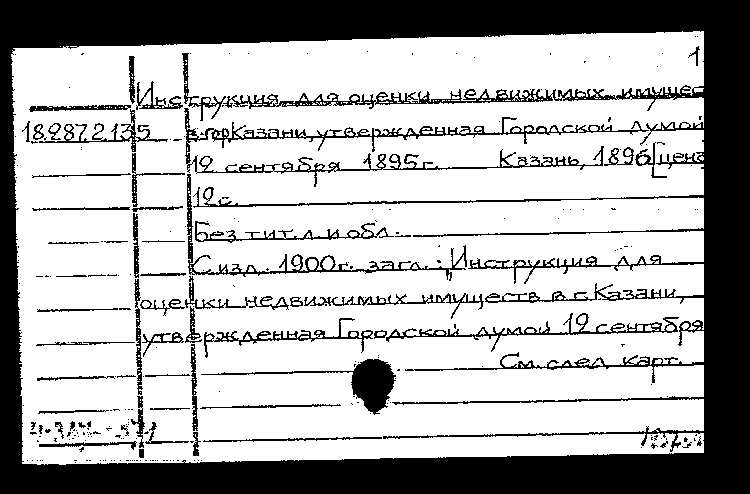 1
Инструкция для оценки недвижимых имущес
18.987.2.135 в гор Казани, утвержденная Городской думой
12 сентября 1895 г. Казань, 1896 [ценз
12 с.
Без тит. л. и обл.
С изд. 1900 г. загл.: "Инструкция для
оценки недвижимых имуществ в г. Казани,
утвержденная Городской думой 12 сентября
См. след. карт.